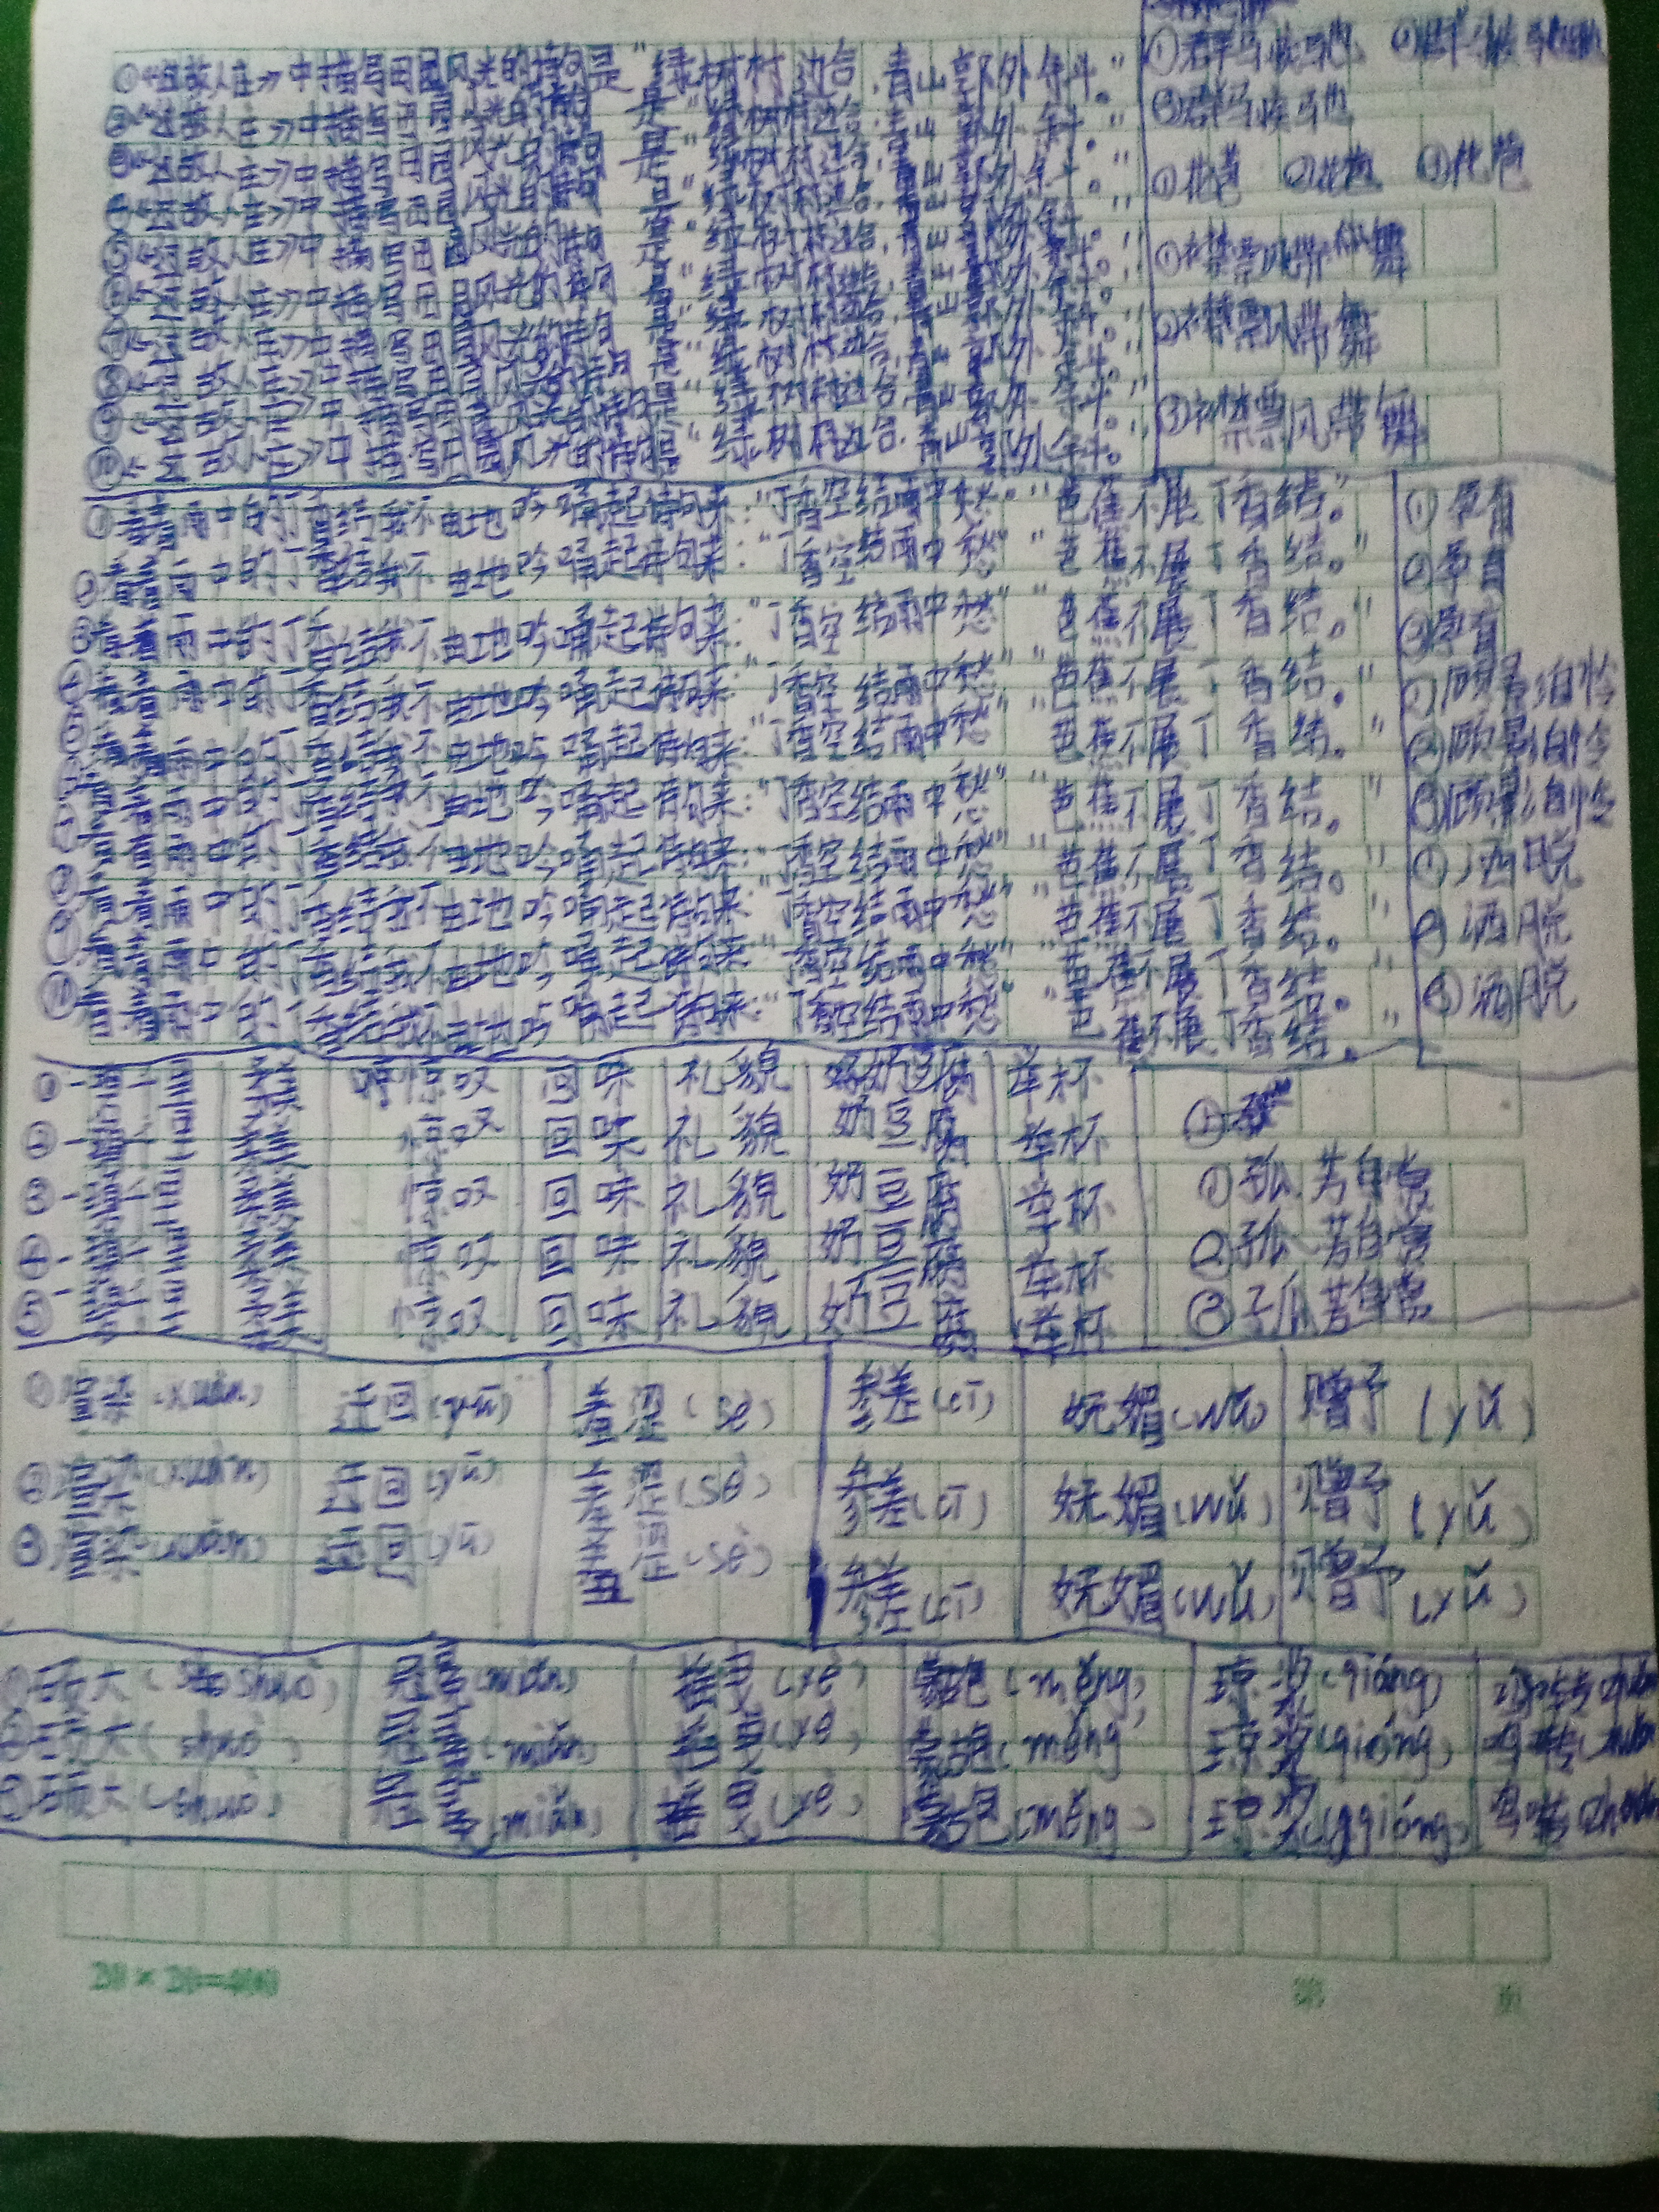 ①《过故人庄》中描写田园风光的诗句是"绿树村边合,青山郭外斜。"
②《过故人庄》中描写田园风光的诗句是"绿树村边合,青山郭外斜。"
③《过故人庄》中描写田园风光的诗句是"绿树村边合,青山郭外斜。"
④《过故人庄》中描写田园风光的诗句是"绿树村边合,青山郭外斜。"
⑤《过故人庄》中描写田园风光的诗句是"绿树村边合,青山郭外斜。"
⑥《过故人庄》中描写田园风光的诗句是"绿树村边合,青山郭外斜。"
⑦《过故人庄》中描写田园风光的诗句是"绿树村边合,青山郭外斜。"
⑧《过故人庄》中描写田园风光的诗句是"绿树村边合,青山郭外斜。"
⑨《过故人庄》中描写田园风光的诗句是"绿树村边合,青山郭外斜。"
⑩《过故人庄》中描写田园风光的诗句是"绿树村边合,青山郭外斜。"
①群马疾驰
③群马疾驰
①花苞 ②花苞 ③花苞
①襟飘带舞
②襟飘带舞
③襟飘带舞
①看着雨中的丁香结我不由地吟诵起诗句来:"丁香空结雨中愁""芭蕉不展丁香结。"
②看着雨中的丁香结我不由地吟诵起诗句来:"丁香空结雨中愁""芭蕉不展丁香结。"
③看着雨中的丁香结我不由地吟诵起诗句来:"丁香空结雨中愁""芭蕉不展丁香结。"
④看着雨中的丁香结我不由地吟诵起诗句来:"丁香空结雨中愁""芭蕉不展丁香结。"
⑤看着雨中的丁香结我不由地吟诵起诗句来:"丁香空结雨中愁""芭蕉不展丁香结。"
看着雨中的丁香结我不由地吟诵起诗句来:"丁香空结雨中愁""芭蕉不展丁香结。"
看着雨中的丁香结我不由地吟诵起诗句来:"丁香空结雨中愁""芭蕉不展丁香结。"
看着雨中的丁香结我不由地吟诵起诗句来:"丁香空结雨中愁""芭蕉不展丁香结。"
看着雨中的丁香结我不由地吟诵起诗句来:"丁香空结雨中愁""芭蕉不展丁香结。"
⑩看着雨中的丁香结我不由地吟诵起诗句来:"丁香空结雨中愁""芭蕉不展丁香结。"
①孕育
②孕育
③孕育
①顾影自怜
②顾影自怜
③顾影自怜
①洒脱
②洒脱
③洒脱
① 惊叹 回味 礼貌 奶豆腐 举杯
② 惊叹 回味 礼貌 奶豆腐 举杯
③ 惊叹 回味 礼貌 奶豆腐 举杯
④ 惊叹 回味 礼貌 奶豆腐 举杯
⑤ 惊叹 回味 礼貌 奶豆腐 举杯
①孤芳自赏
②孤芳自赏
③孤芳自赏
①渲染(xuàn) 迂回(yū) 羞涩(sè) 参差(cī) 妩媚(wǔ) 赠予(yǔ)
②渲染(xuàn) 迂回(yū) 羞涩(sè) 参差(cī) 妩媚(wǔ) 赠予(yǔ)
③渲染(xuàn) 迂回(yū) 羞涩(sè) 参差(cī) 妩媚(wǔ) 赠予(yǔ)
①硕大(shuò) 冠冕(miǎn) 摇曳(yè) 蒙古包(měng) 琼浆(qióng)
②硕大(shuò) 冠冕(miǎn) 摇曳(yè) 蒙古包(měng) 琼浆(qióng)
③硕大(shuò) 冠冕(miǎn) 摇曳(yè) 蒙古包(měng) 琼浆(qióng)
20×20=400 第 页